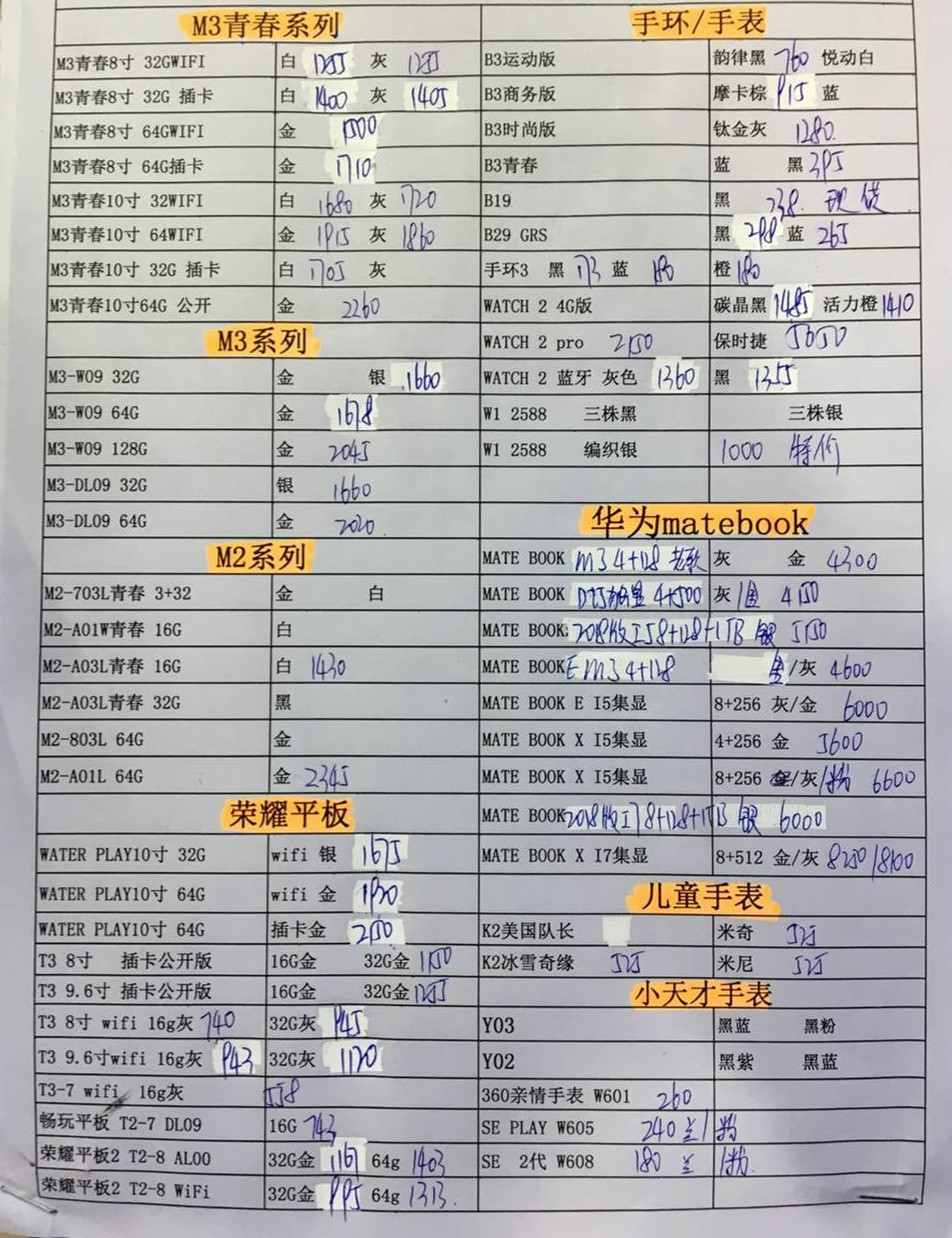 M3青春系列
M3青春8寸 32GWIFI 白 1255 灰 1255
M3青春8寸 32G 插卡 白 1400 灰 1405
M3青春8寸 64GWIFI 金 1500
M3青春8寸 64G插卡 金 1710
M3青春10寸 32WIFI 白 1680 灰 1720
M3青春10寸 64WIFI 金 1915 灰 1860
M3青春10寸 32G 插卡 白 1705 灰
M3青春10寸64G 公开 金 2260
M3系列
M3-W09 32G 金 银 1660
M3-W09 64G 金 1678
M3-W09 128G 金 2045
M3-DL09 32G 银 1660
M3-DL09 64G 金 2020
M2系列
M2-703L青春 3+32 金 白
M2-A01W青春 16G 白
M2-A03L青春 16G 白 1430
M2-A03L青春 32G 黑
M2-803L 64G 金
M2-A01L 64G 金 2345
荣耀平板
WATER PLAY10寸 32G wifi 银 1675
WATER PLAY10寸 64G wifi 金 1920
WATER PLAY10寸 64G 插卡金 2150
T3 8寸 插卡公开版 16G金 32G金 1150
T3 9.6寸 插卡公开版 16G金 32G金 1255
T3 8寸 wifi 16g灰 740 32G灰 945
T3 9.6寸wifi 16g灰 943 32G灰 1120
T3-7 wifi 16g灰 558
畅玩平板 T2-7 DL09 16G 743
荣耀平板2 T2-8 AL00 32G金 1161 64g 1403
荣耀平板2 T2-8 WiFi 32G金 995 64g 1313
手环/手表
B3运动版 韵律黑 760 悦动白
B3商务版 摩卡棕 915 蓝
B3时尚版 钛金灰 1280
B3青春 蓝 黑 395
B19 黑 238 现货
B29 GRS 黑 298 蓝 265
手环3 黑 173 蓝 180 橙 180
WATCH 2 4G版 碳晶黑 1485 活力橙 1410
WATCH 2 pro 2150 保时捷 5050
WATCH 2 蓝牙 灰色 1360 黑 1355
W1 2588 三株黑 三株银
W1 2588 编织银 1000 特价
华为matebook
MATE BOOK M3 4+128 老款 灰 金 4300
MATE BOOK 4+500 灰/金 4150
MATE BOOK 2018版I5 8+128+1TB 银 5150
MATE BOOK E M3 4+128 金/灰 4600
MATE BOOK E I5集显 8+256 灰/金 6000
MATE BOOK X I5集显 4+256 金 5600
MATE BOOK X I5集显 8+256 金/灰/粉 6600
MATE BOOK 2018版I7 8+128+1TB 银 6000
MATE BOOK X I7集显 8+512 金/灰 8250/8100
儿童手表
K2美国队长 米奇 525
K2冰雪奇缘 525 米尼 525
小天才手表
Y03 黑蓝 黑粉
Y02 黑紫 黑蓝
360亲情手表 W601 260
SE PLAY W605 240 兰/粉
SE 2代 W608 180 兰/粉